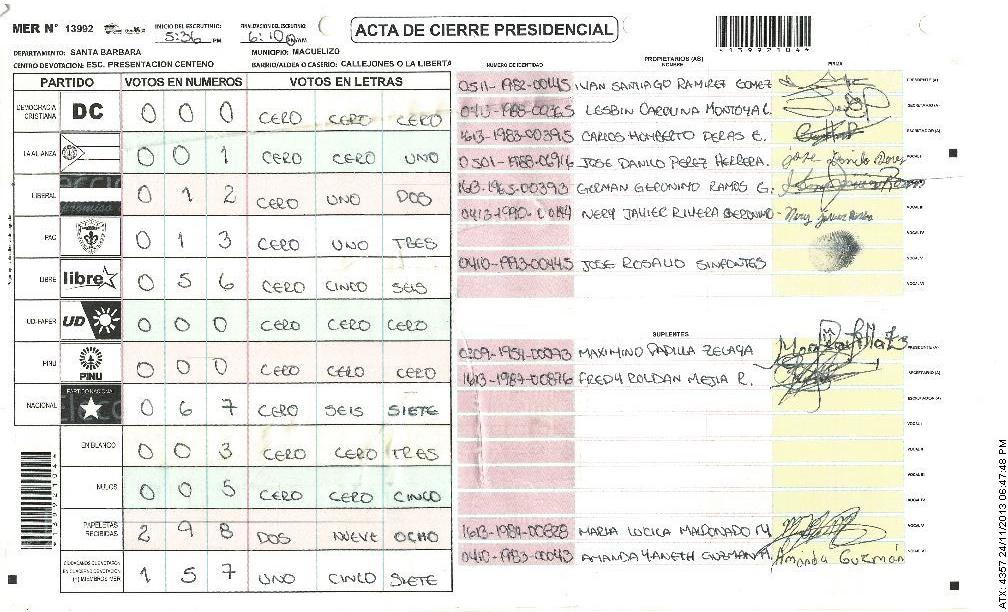 MER N° 13992
INICIO DEL ESCRUTINIO: 5:36 PM
FINALIZACION DEL ESCRUTINIO: 6:10 PM/AM
ACTA DE CIERRE PRESIDENCIAL
DEPARTAMENTO: SANTA BARBARA
MUNICIPIO: MACUELIZO
CENTRO DEVOTACION: ESC. PRESENTACION CENTENO
BARRIO/ALDEA O CASERIO: CALLEJONES O LA LIBERTA
PARTIDO VOTOS EN NUMEROS VOTOS EN LETRAS
DEMOCRACIA CRISTIANA DC 0 0 0 CERO CERO CERO
LA ALIANZA 0 0 1 CERO CERO UNO
LIBERAL 0 1 2 CERO UNO DOS
PAC 0 1 3 CERO UNO TRES
LIBRE libre 0 5 6 CERO CINCO SEIS
UD-FAPER UD 0 0 0 CERO CERO CERO
PINU PINU 0 0 0 CERO CERO CERO
NACIONAL PARTIDO NACIONAL 0 6 7 CERO SEIS SIETE
EN BLANCO 0 0 3 CERO CERO TRES
NULOS 0 0 5 CERO CERO CINCO
PAPELETAS RECIBIDAS 2 9 8 DOS NUEVE OCHO
CIUDADANOS QUE VOTARON EN CUADERNO DE VOTACION (+) MIEMBROS MER 1 5 7 UNO CINCO SIETE
PROPIETARIOS (AS)
NUMERO DE IDENTIDAD NOMBRE FIRMA
0511-1982-00445 IVAN SANTIAGO RAMIREZ GOMEZ PRESIDENTE (A)
0413-1988-00365 LESBIN CAROLINA MONTOYA L. SECRETARIO (A)
1613-1983-00395 CARLOS HUMBERTO DERAS E. ESCRUTADOR (A)
0501-1988-06916 JOSE DANILO PEREZ HERRERA. VOCAL I
1613-1965-00393 GERMAN GERONIMO RAMOS G. VOCAL II
NERY JAVIER RIVERA GERONIMO VOCAL III
VOCAL IV
0410-1993-00445 JOSE ROSALIO SINFONTES VOCAL V
VOCAL VI
SUPLENTES
0309-1959-00093 MAXIMINO PADILLA ZELAYA PRESIDENTE (A)
1613-1987-00876 FREDY ROLDAN MEJIA R. SECRETARIO (A)
ESCRUTADOR (A)
VOCAL I
VOCAL II
VOCAL III
VOCAL IV
1613-1989-00828 MARIA LUCILA MALDONADO M VOCAL V
0410-1983-00043 AMANDA YANETH GUZMAN Amanda Guzmán VOCAL VI
ATX: 4357 24/11/2013 06:47:48 PM